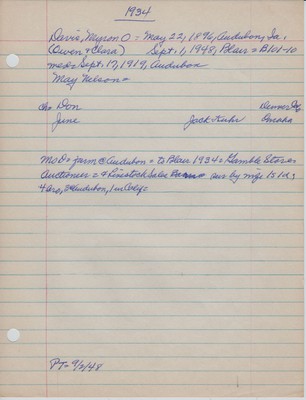 1934
Davis, Myron O = May 22, 1896, Audubon, Ia.
(Owen & Clara) Sept. 1, 1948, Blair = B101-10
med = Sept. 17, 1919, Audubon
May Nelson =
Ch = Don Denver
June Jack Kuhr Omaha
McD = farm @ Audubon = to Blair 1934 = Gamble Stores
Auctioneer = & Livestock Sales = sur by mf 1 Sis,
4 bro, 3 Audubon, 1 in
PT = 9/2/48